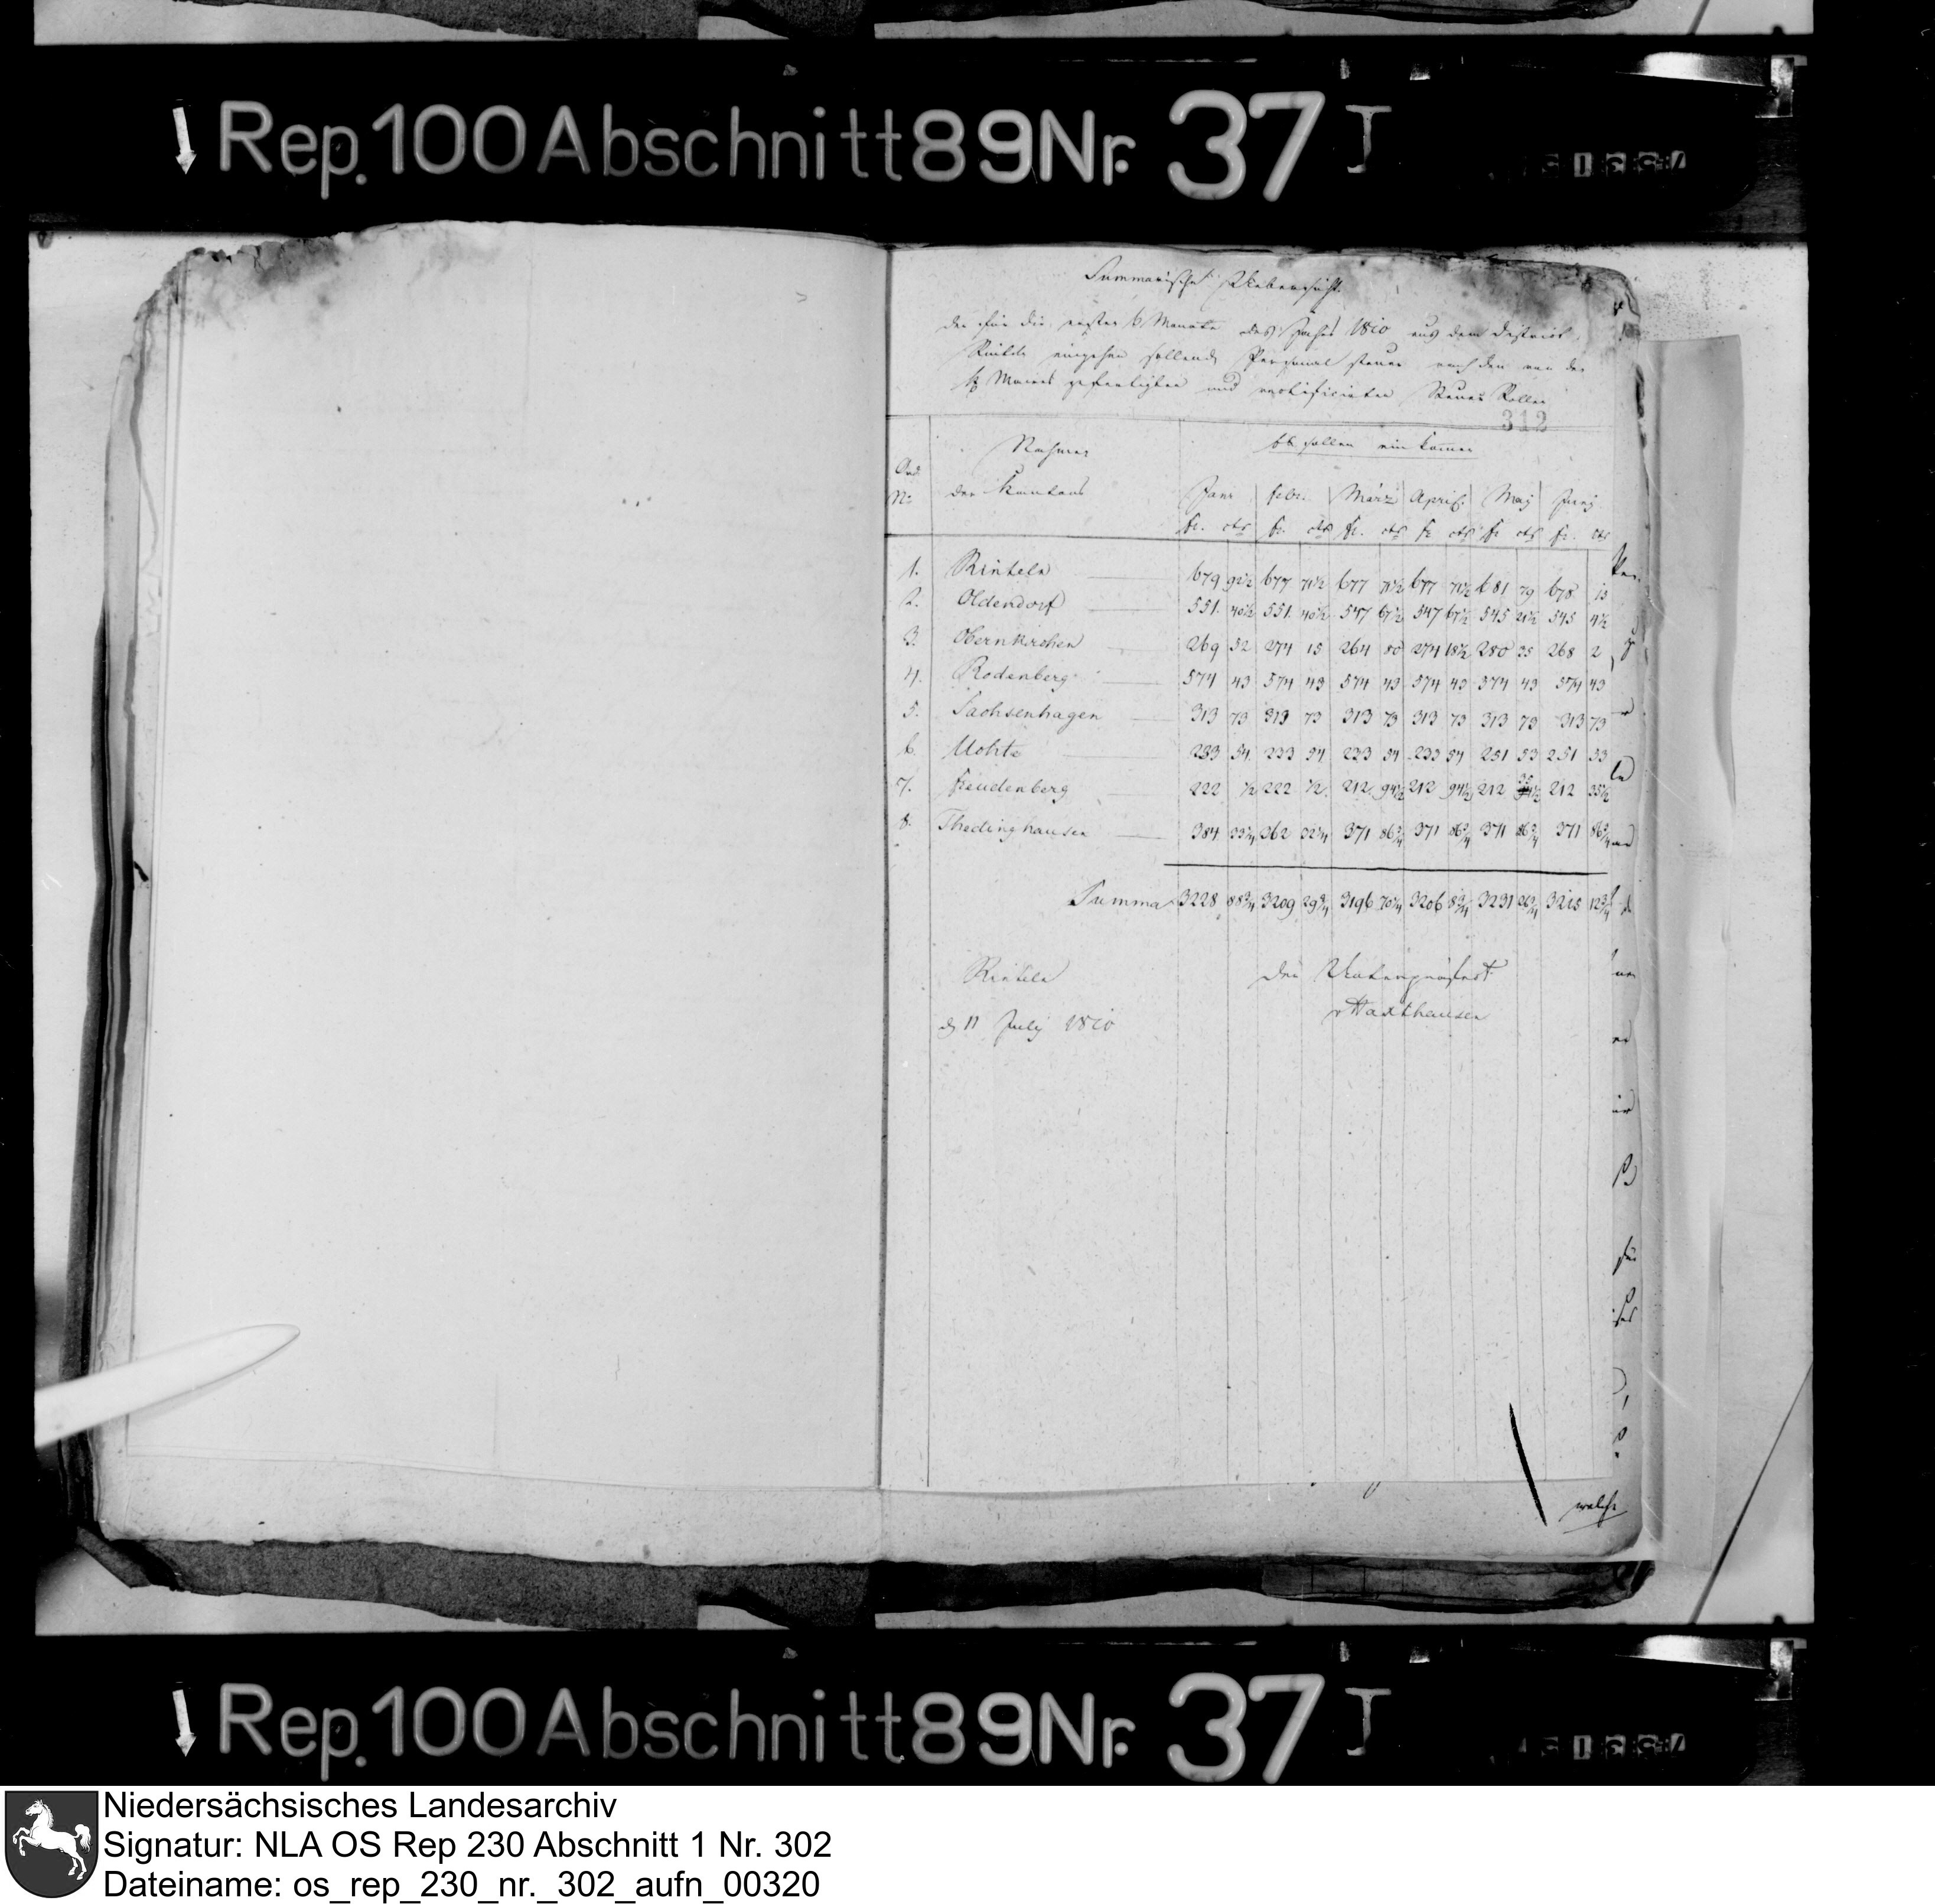 Rep. 100 Abschnitt 89 Nr. 37 I
Summarische Uebersicht
der für die ersten 6 Monate des Jahres 1810 aus dem District
Rinteln eingehen sollende Personal steuer nach den von den
Maires gefertigten und rectificirten Steuer Rollen
312
Ord. Nahmen Es sollen ein komen
No der Kantons Janr febr. März April May Juny
fr. cts fr. cts fr. cts fr cts fr cts fr. cts
1. Rinteln 679 92½ 677 71½ 677 71½ 677 71½ 681 79 678 13
2. Oldendorf 551. 40½ 551. 40½ 547 67½ 547 67½ 545 21½ 545 4½
3. Obernkirchen 269 52 274 15 264 80 274 18½ 280 35 268 2
4. Rodenberg 574 43 574 43 574 43 574 43 574 43 574 43
5. Sachsenhagen 313 73 313 73 313 73 313 73 313 73 313 73
6. Uchte 233 54 233 54 233 54 233 54 251 53 251 53
7. Freudenberg 222 ½ 222 ½ 212 94½ 212 94½ 212 212 35½
8. Thedinghausen 384 33¼ 362 32¼ 371 86¾ 371 86¾ 371 86¾ 371 86¾
Summa 3228 88¾ 3209 29¾ 3196 70¼ 3206 8¾ 3231 26¾ 3215 12¾
Rinteln der Unterpräfect
d. 11 July 1810 v Haxthausen
welche
Rep. 100 Abschnitt 89 Nr. 37 I
Niedersächsisches Landesarchiv
Signatur: NLA OS Rep 230 Abschnitt 1 Nr. 302
Dateiname: os_rep_230_nr._302_aufn_00320